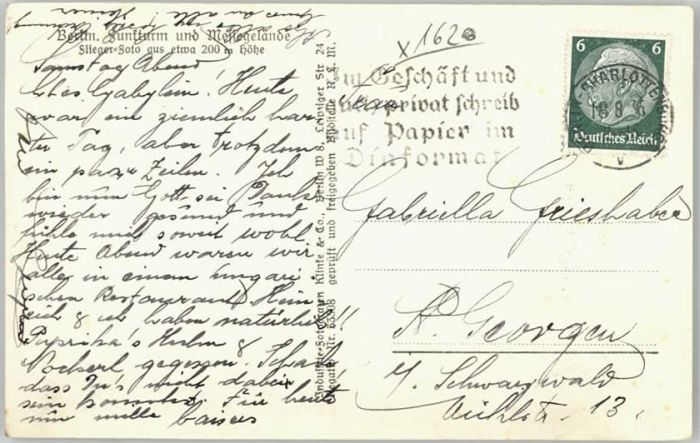 Berlin. Funkturm und Messegelände
Flieger-Foto aus etwa 200 m Höhe
Samstag Abend
Liebes Gabylein! Heute
war ein ziemlich har-
ter Tag, aber trotzdem
ein paar Zeilen. Ich
bin nun Gott sei Dank
wieder gesund und
fühle mich soweit wohl.
Heute Abend waren wir
alle in einem ungari-
schen Restaurant. Hein
& ich haben natürlich!!
Paprika's Huhn &
Nockerl gegessen. Schade
dass Du nicht dabei
sein konntest. Für heute
nun mille baisers
Industrie-Fotografen Klinke & Co., Berlin W 8, Leipziger Str 24
Negativ Nr. geprüft und freigegeben Bildstelle R. L. M.
x1620
Im Geschäft und
privat schreib
auf Papier im
Dinformat
6 6
Deutsches Reich
CHARLOTTENBURG
Gabriella Grieshaber
St. Georgen
i/ Schwarzwald
Mühlstr. 13.